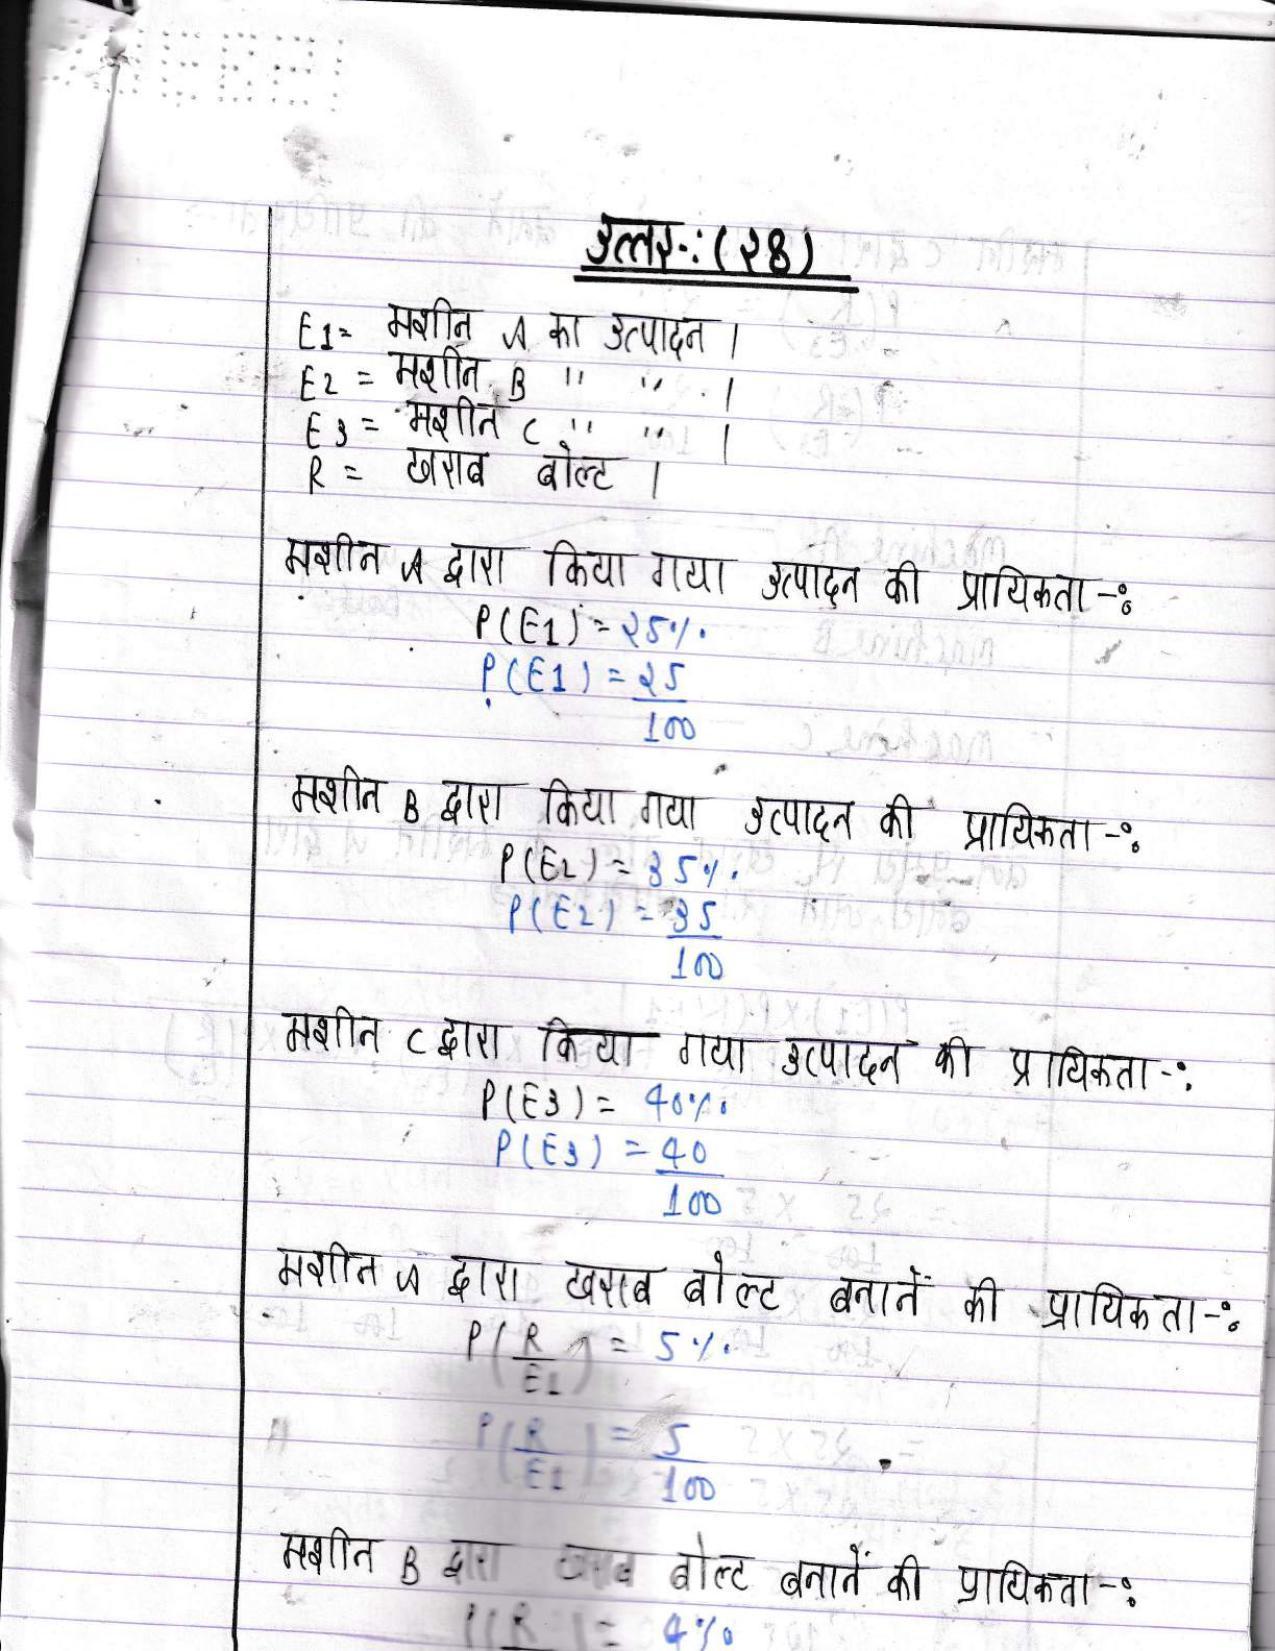 उत्तर-:(28)
E1= मशीन A का उत्पादन |
E2 = मशीन B " " |
E3 = मशीन C " " |
R = खराब बोल्ट |
मशीन A द्वारा किया गया उत्पादन की प्रायिकता -:
P(E1) = 25%.
P(E1) = 25
100
मशीन B द्वारा किया गया उत्पादन की प्रायिकता -:
P(E2) = 35%.
P(E2) = 35
100
मशीन C द्वारा किया गया उत्पादन की प्रायिकता -:
P(E3) = 40%.
P(E3) = 40
100
मशीन A द्वारा खराब बोल्ट बनानें की प्रायिकता -:
P(R/E1) = 5%.
P(R/E1) = 5
100
मशीन B द्वारा खराब बोल्ट बनानें की प्रायिकता -:
P(R ) = 4%